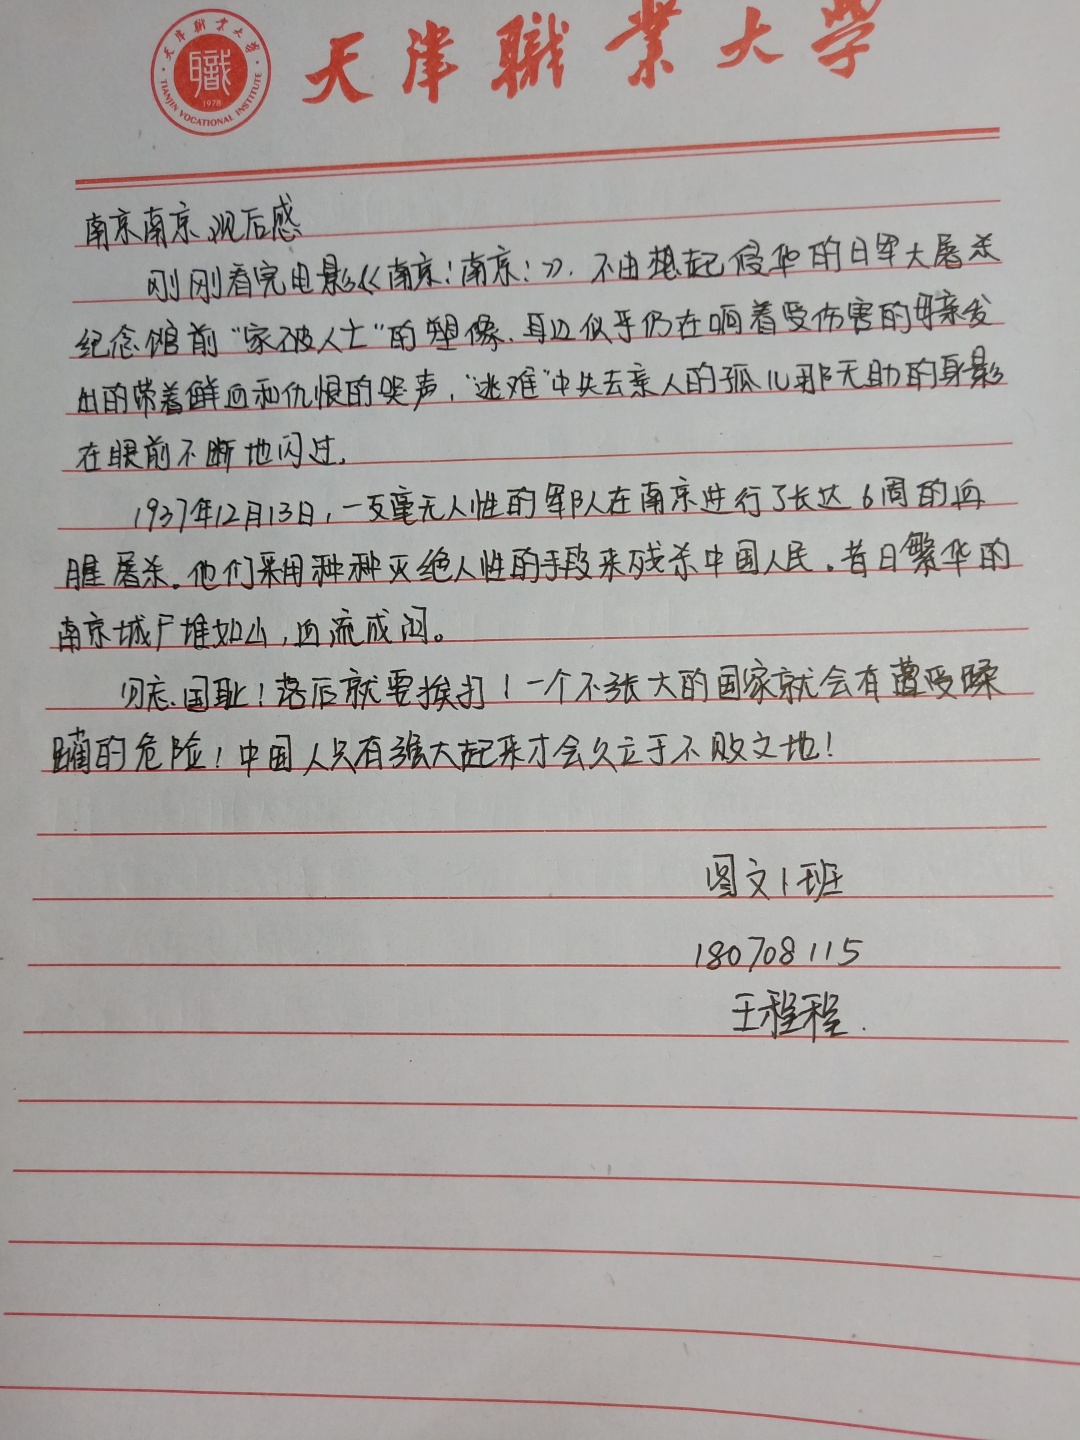 天津職業大學
天津職業大學
職
1978
TIANJIN VOCATIONAL INSTITUTE
南京南京观后感
刚刚看完电影《南京!南京!》.不由想起侵华的日军大屠杀
纪念馆前“家破人士”的塑像.耳边似乎仍在响着受伤害的母亲发
出的带着鲜血和仇恨的哭声,“逃难”中失去亲人的孤儿那无助的身影
在眼前不断地闪过.
1937年12月13日,一支毫无人性的军队在南京进行了长达6周的血
腥屠杀.他们采用种种灭绝人性的手段来残杀中国人民.昔日繁华的
南京城尸堆如山,血流成河。
勿忘国耻!落后就要挨打!一个不强大的国家就会有遭受蹂
躏的危险!中国人只有强大起来才会久立于不败之地!
图文1班
180708115
王程程.